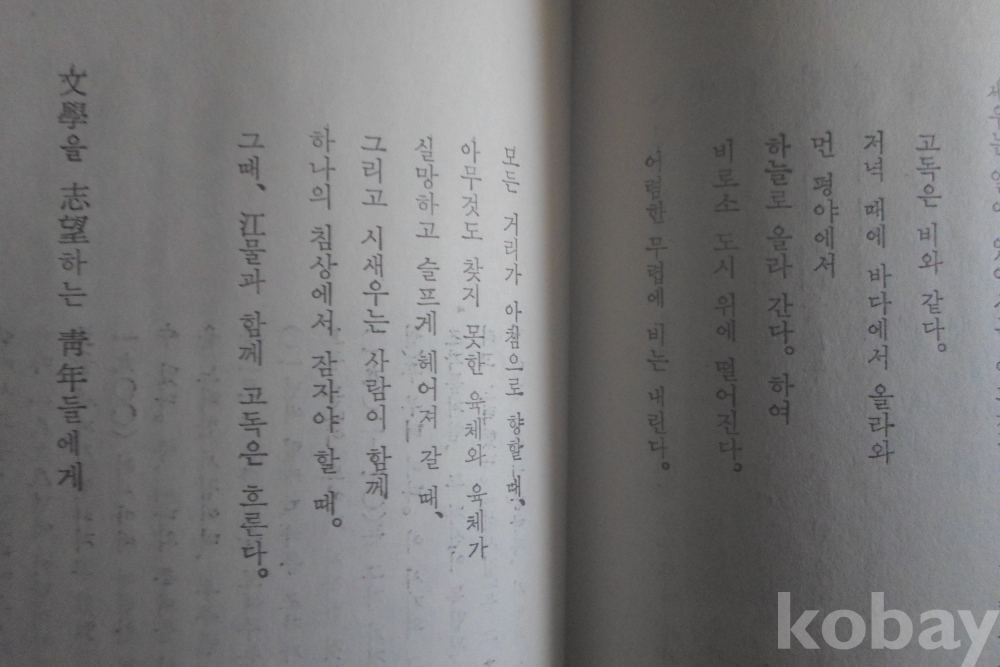 고독은 비와 같다。
저녁 때에 바다에서 올라와
먼 평야에서
하늘로 올라 간다。 하여
비로소 도시 위에 떨어진다。
어렴한 무렵에 비는 내린다。
모든 거리가 아침으로 향할 때、
아무것도 찾지 못한 육체와 육체가
실망하고 슬프게 헤어져 갈 때、
그리고 시새우는 사람이 함께
하나의 침상에서 잠자야 할 때。
그때、 江물과 함께 고독은 흐른다。
文學을 志望하는 靑年들에게
kobay